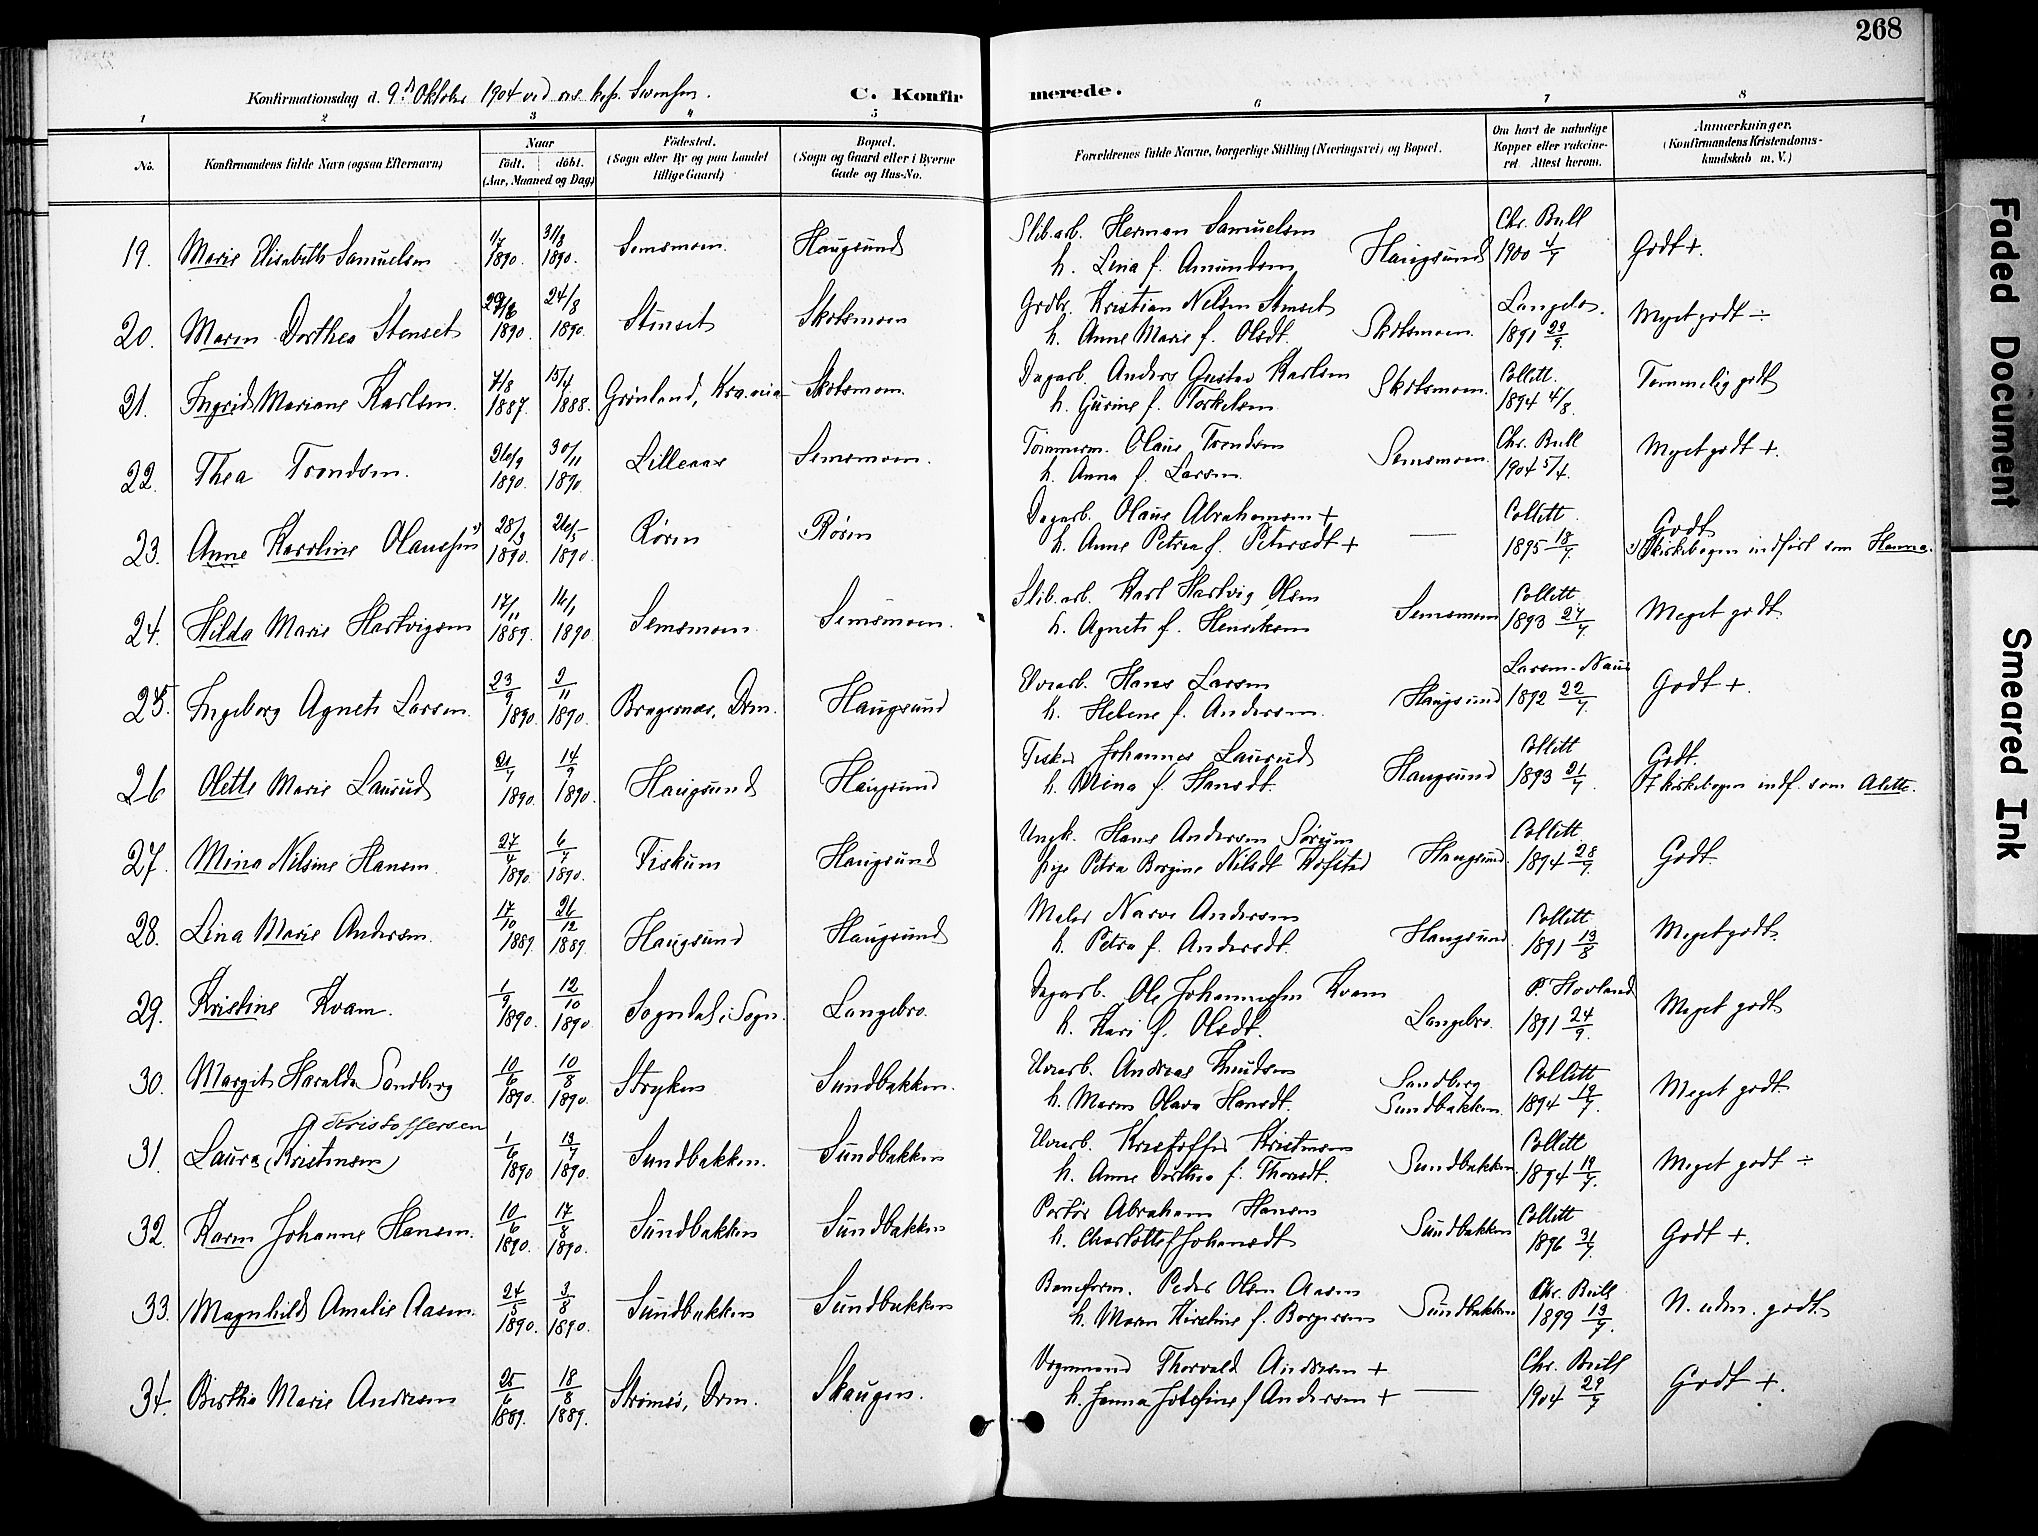 268
Konfirmationsdag d. 9de Oktober 1904 ved res. kap. Svensen.
C. Konfirmerede.
1 2 3 4 5 6 7 8
No. Konfirmandens fulde Navn (ogsaa Efternavn) Naar født. døbt. (Aar, Maaned og Dag) Fødested. (Sogn eller By og paa Landet tillige Gaard) Bopæl. (Sogn og Gaard eller i Byerne Gade og Hus-No. Forældrenes fulde Navne, borgerlige Stilling (Næringsvei) og Bopæl. Om havt de naturlige Kopper eller vakcineret. Attest herom. Anmærkninger. (Konfirmandens Kristendomskundskab m. V.)
19. Marie Elisabeth Samuelsen 1/7 1890. 31/8 1890. Semsmoen. Haugsund Slib.arb. Herman Samuelsen Haugsund Chr. Bull Godt +.
h. Lina f. Amundsen 1900 4/7
20. Maren Dorthea Stenset 29/6 1890. 24/8 1890. Stenset Skotsmoen Grdbr. Kristian Nelsen Stenset Skotsmoen. Langelo. Myet godt ÷
h. Anne Marie f. Olsdt. 1891 29/9.
21. Ingrid Mariane Karlsen. 7/8 1887. 15/4 1888. Grønland, Kra.nia Skotsmoen. Dagarb. Anders Gustav Karlsen Skotsmoen. Collett. Temmelig godt
h. Gurine f. Torkelsen 1894 4/8.
22. Thea Trondsen. 26/9 1890. 30/11 1890. Lilleaas Semsmoen. Tømmerm. Olaus Trondsen Semsmoen. Chr. Bull Myet godt +.
h. Anna f. Larsen. 1904 5/4.
23. Anne Karoline Olaussen 28/3 1890. 26/5 1890. Røren Røren Dagarb. Olaus Abrahamsen + — Collett. Godt
h. Anne Petrea f. Petersdt + 1895 18/7. I Kirkebogen indført som Hanna.
24. Hilda Marie Hartvigsen 17/11 1889. 16/1 1890 Semsmoen Semsmoen. Slib.arb. Karl Hartvig Olsen Semsmoen Collett Meget godt
h. Agnete f. Henriksen 1893 27/7.
25. Ingeborg Agnete Larsen 23/9 1890. 9/11 1890. Bragernæs, Drm. Haugsund Uvearb. Hans Larsen Haugsund Larsen-Naur Godt +.
h. Helene f. Andersen. 1892 22/7.
26 Olette Marie Laurud 21/7 1890. 14/9 1890. Haugsund Haugsund Fisker Johannes Laurud Haugsund Collett Godt.
h. Mina f. Hansdt. 1893 21/7. I kirkebogen indf. som Alette.
27. Mina Nilsine Hansen 27/4 1890. 6/7 1890. Fiskum Haugsund Ungk. Hans Andersen Sørum Haugsund. Collett Godt.
Pige Petra Borgine Nilsdt Hofstad 1894 28/7.
28. Lina Marie Andersen. 17/10 1889. 26/12 1889. Haugsund Haugsund Maler Narve Andersen Haugsund. Collett Meget godt.
h. Petra f. Andersdt. 1891 13/8
29. Kristine Kvam. 1/9 1890. 12/10 1890. Sogndal i Sogn. Langebro. Dagarb. Ole Johannessen Kvam Langebro. P. Hovland Meget godt
h. Kari f. Olsdt. 1891 24/9.
30. Margit Haralda Sandberg 10/6 1890. 10/8 1890. Stryken Sundbakken. Uvearb. Andreas Knudsen Sandberg Collett Meget godt
h. Maren Olava Hansdt. Sundbakken. 1894 19/7.
Kristoffersen
31. Laura (Kristensen) 1/6 1890 13/7 1890. Sundbakken. Sundbakken Uvearb. Kristoffer Kristensen Sundbakken Collett Meget godt ÷
h. Anne Dorthea f. Thoresdt. 1894 19/7.
32. Karen Johanne Hansen. 10/6 1890. 17/8 1890. Sundbakken Sundbakken Abraham Hansen Sundbakken Collett Godt +.
h. Charlotte f Johansdt 1896 31/7.
33. Magnhild Amalie Aasen. 24/5 1890. 3/8 1890. Sundbakken Sundbakken Baneform. Peder Olsen Aasen Sundbakken Chr. Bull N. uden. godt
h. Maren Kirstine f. Borgersen 1899 13/7.
34. Berthe Marie Andersen 25/6 1889. 18/8 1889. Strømsø, Drm. Skaugen. Vognmand Thorvald Andersen + — Chr. Bull Godt +.
h. Janna Josefine f Andersen + 1904 29/7
Faded Document
Smeared Ink